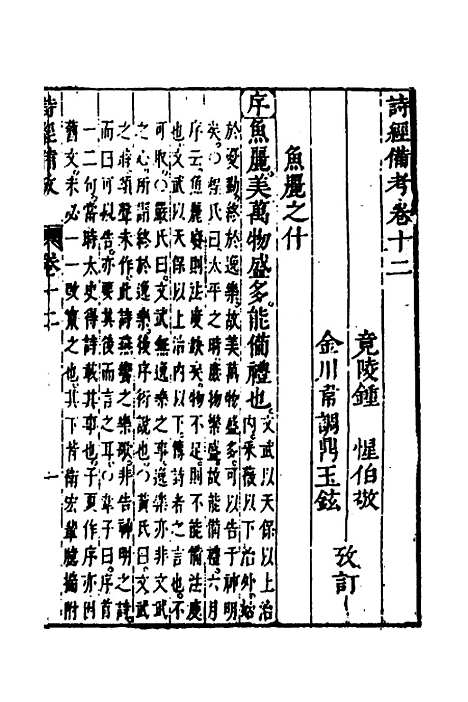 詩經備考卷十二
竟陵鍾惺伯敬
金川韋調鼎玉鉉
攷訂
魚麗之什
序魚麗美萬物盛多能備禮也
文武以天保以上治
內采薇以下治外始
於憂勤終於逸樂故美萬物盛多可以告于神明
矣○程氏曰太平之時庶物樂盛故能備禮六月
序云魚麗廢則法度缺矣物不足則不能備法度
也文武以天保以上治內以下傳詩者之言也不
可取○嚴氏曰文武無逸樂之事逸樂亦非文武
之心所謂終於逸樂後序衍說也○黃氏曰文武
之時頌聲未作此詩燕饗之樂歌非告神明之詩
而曰可以告亦要其後而言之耳○韋子曰序首
一二句當時太史得詩載其事也子夏作序亦因
舊文未必一一攷實之也其下皆衛宏輩臆摘附
詩經備攷
卷十二
一